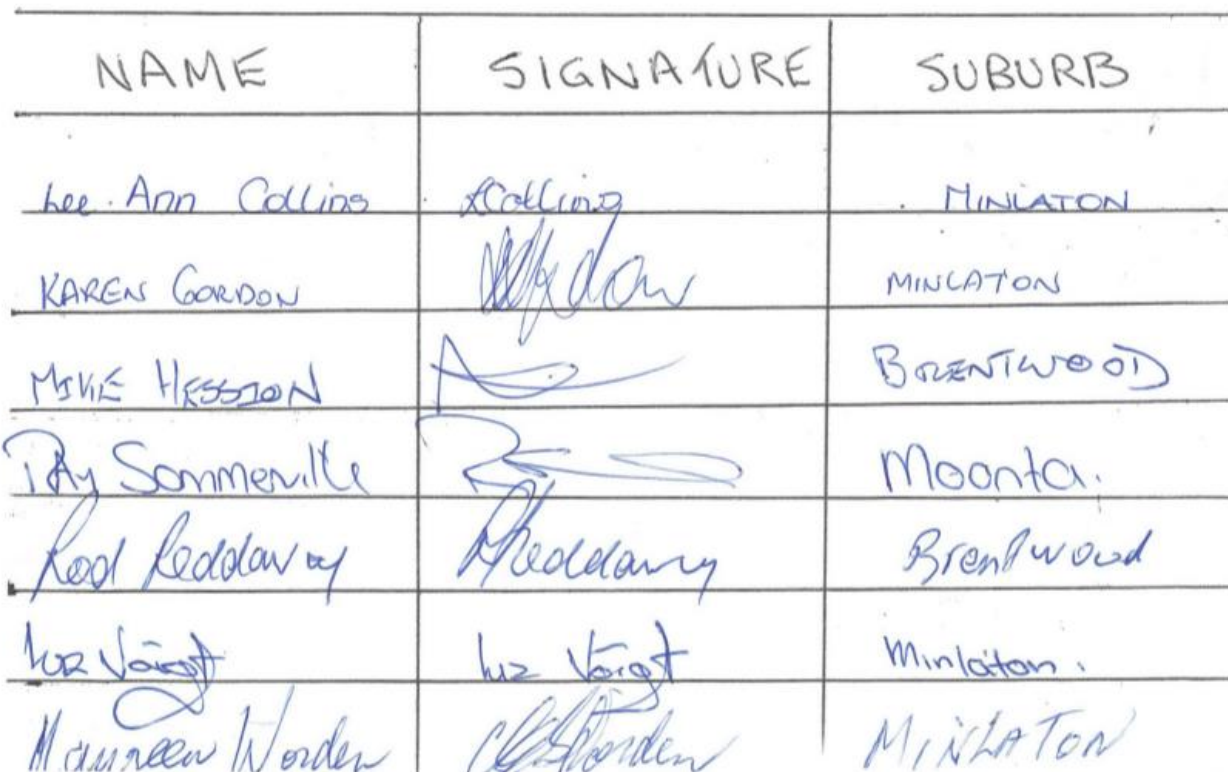 NAME SIGNATURE SUBURB
Lee Ann Collins LCollins MINLATON
KAREN GORDON MINLATON
MIKE HESSION BRENTWOOD
Ray Sommerville Moonta.
Rod Reddaway RReddaway Brentwood
Luz Voigt Luz Voigt Minlaton.
Maureen Worden Worden MINLATON